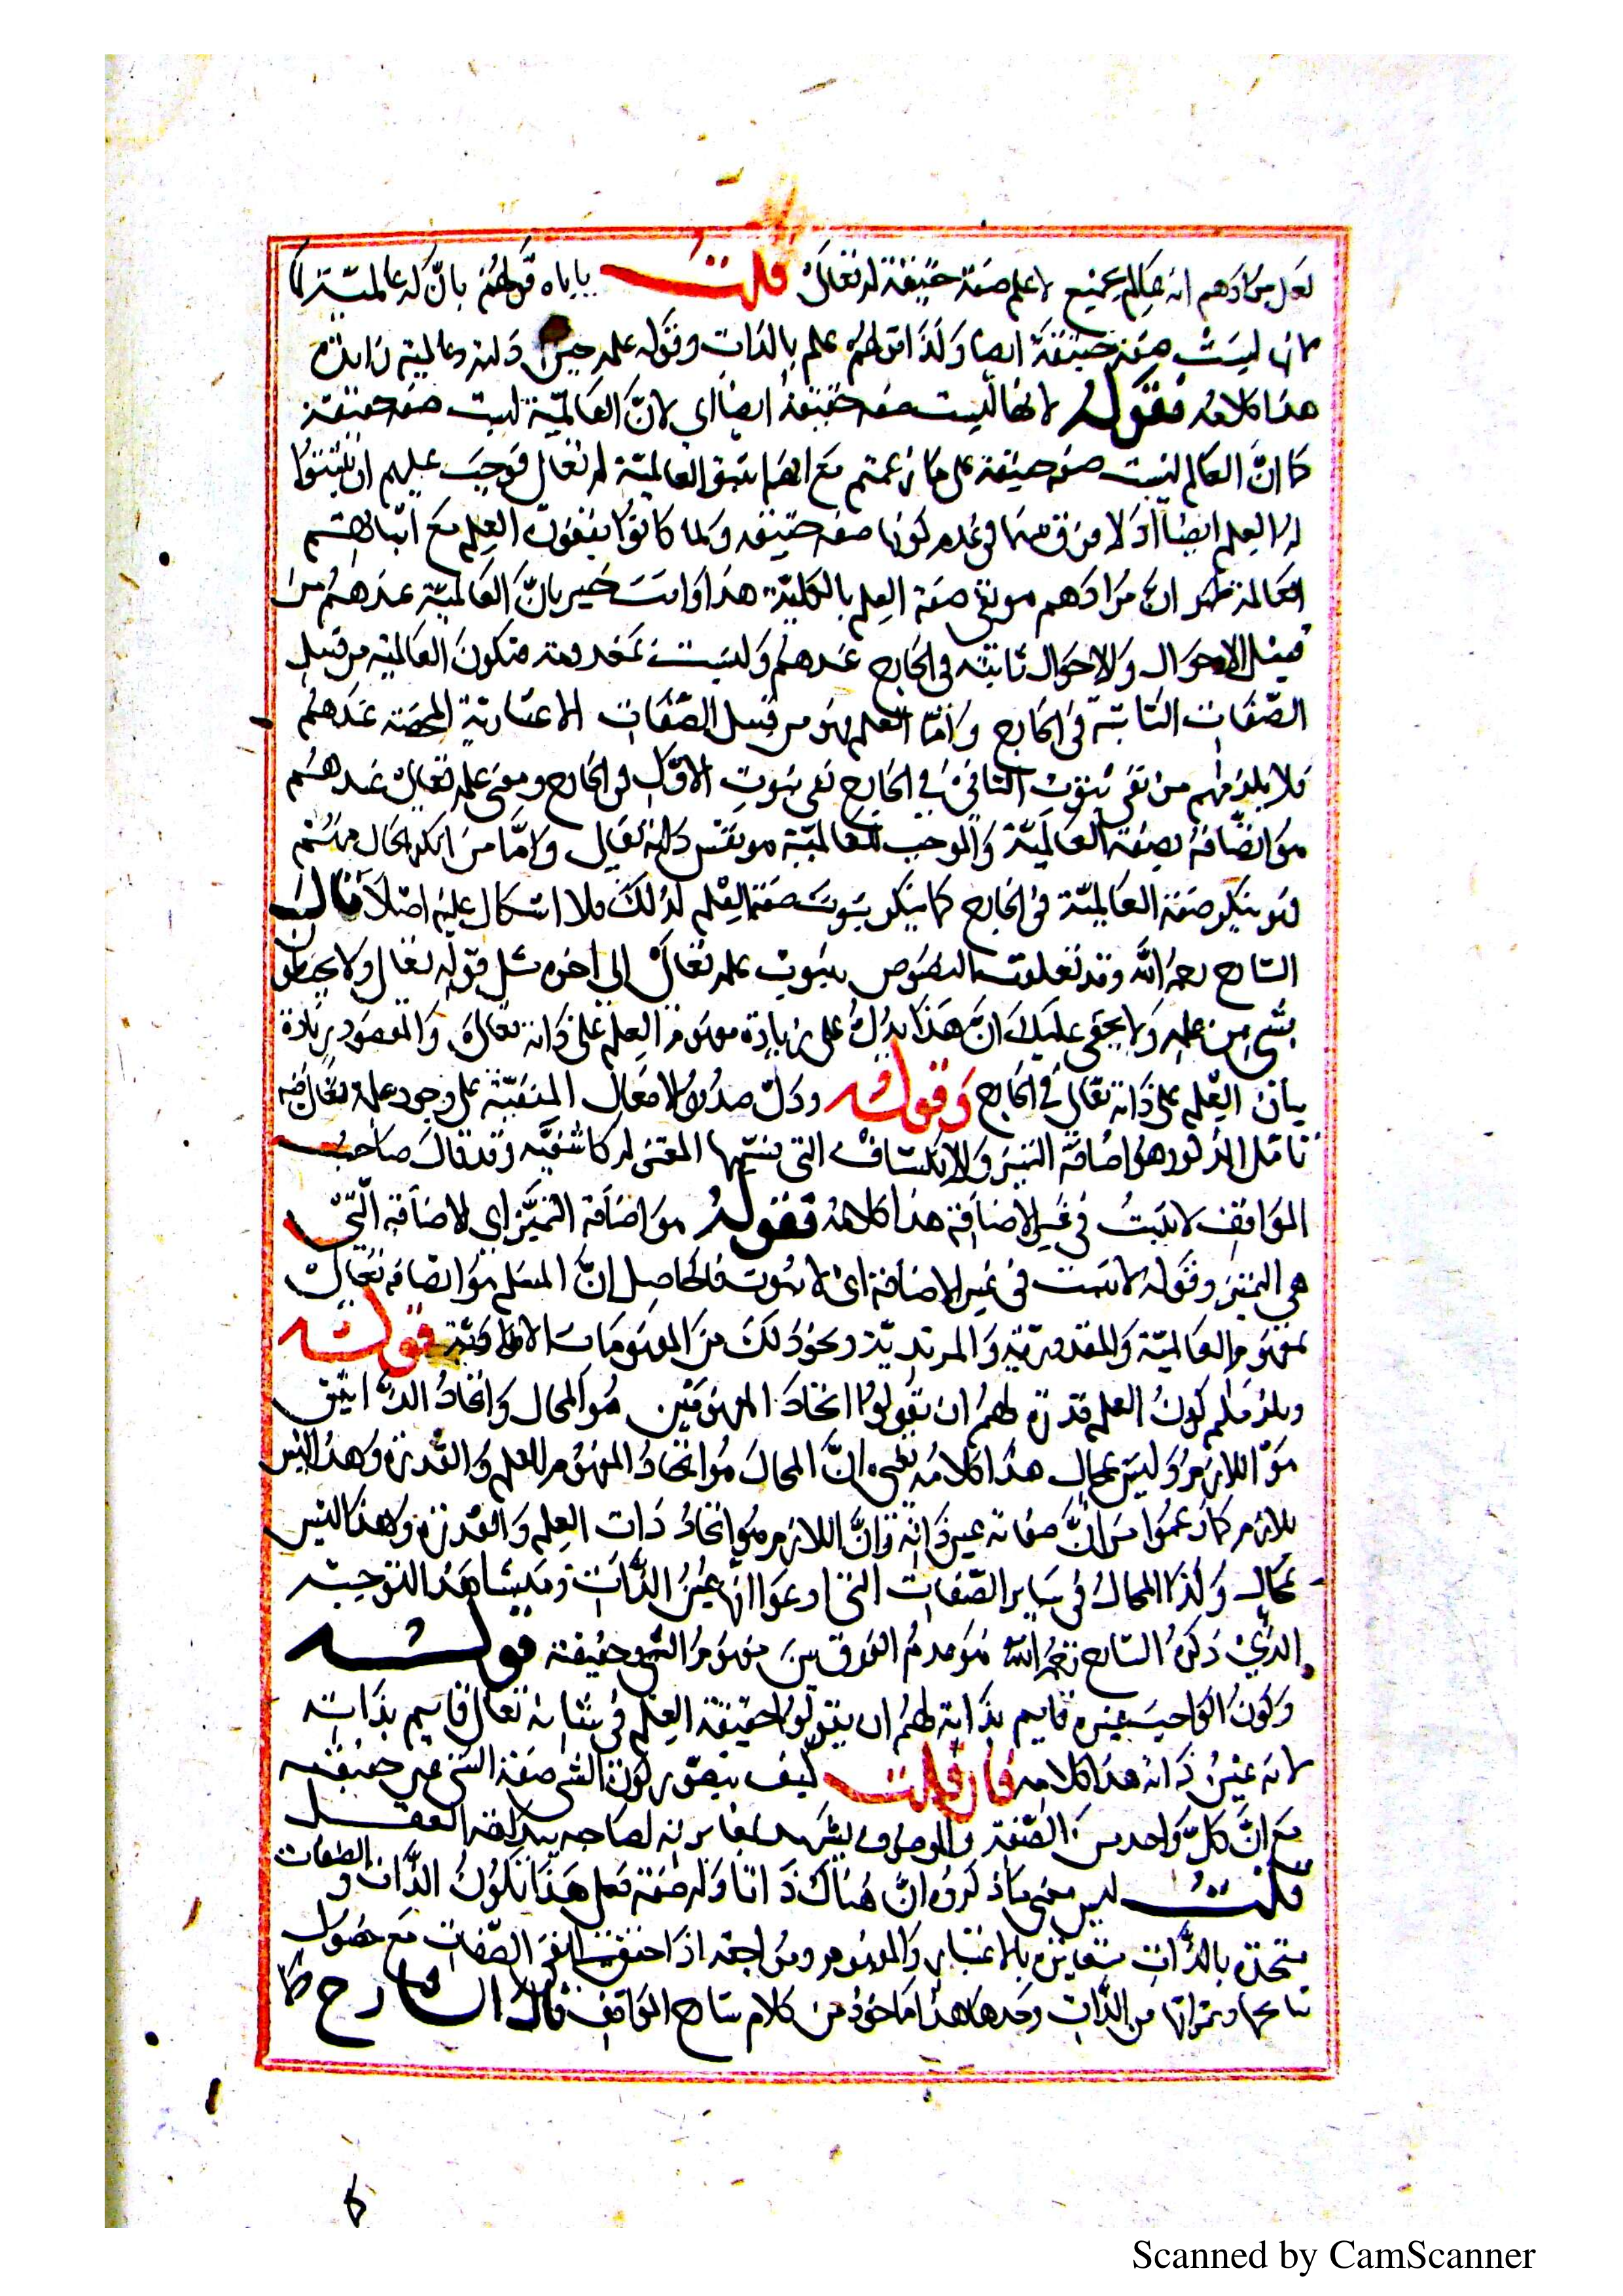 لعل مرادهم انه عالم بجميع لا علم صفة حقيقة له تعالى قلت يأباه قولهم بانّ له عالمية لما
كان ليست صفة حقيقة ايضا وكذا قولهم علم بالذات وقوله علمه عين ذاته وعالمية زائدة
هذا كلامه فقوله لانها ليست صفة حقيقة ايضا اى لانّ العالميّة ليست صفة حقيقة
كما انّ العالم ليست صفة حقيقة على ما زعمتم مع انهم يثبتوا العالميّة له تعالى فوجب عليهم ان يثبتوا
له العلم ايضا اذ لا فرق بينهما فى عدم كونها صفة حقيقة ولما كانوا ينفون العلم مع اثباتهم
العالمة ظهر ان مرادهم هو نفى صفة العلم بالكلية هذا وانت خبير بانّ العالميّة عندهم من
قبيل الاحوال والاحوال ثابتة فى الخارج عندهم وليست بمعدومة فتكون العالمية من قبيل
الصّفات الثابتة فى الخارج وامّا العلم فهو من قبيل الصّفات الاعتبارية المحضة عندهم
فلا يلزمهم من نفى ثبوت الثانى فى الخارج نفى ثبوت الاول فى الخارج ومعنى علمه تعالى عندهم
هو اتصافه بصفة العالميّة والموجب للعالميّة هو نفس ذاته تعالى وامّا من انكر الحال منهم
فهو ينكر صفة العالميّة فى الخارج كما ينكر ثبوت صفة العلم لذلك فلا اشكال عليه اصلا قال
الشارح رحمه الله وقد نعلوت النصوص بثبوت علمه تعالى الى اخره مثل قوله تعالى ولا يحيطون
بشىء من علمه ولا يخفى عليك انّ هذا يدلّ على زيادة مفهوم العلم على ذاته تعالى والمقصود زيادة
بيان العلم على ذاته تعالى فى الخارج وقوله ودلّ صدور الافعال المتقنة على وجود علمه تعالى فيه
تامّل المذكور هو اضافة التميز والانكشاف التى يسميها المعتزله كاشفيه وقد قال صاحب
المواقف لا يثبت فى غير الاضافة هذا كلامه فقوله هو اضافة التميّز اى الاضافة الّتى
هى التميز وقوله لا يثبت فى غير الاضافة اى لا ثبوت فالحاصل انّ المسلم هو اتصافه تعالى
بمفهوم العالميّة والمقدورية والمريدية ونحو ذلك من المفهومات الاضافيّة قوله
ويلزمكم كون العلم قدرة لهم ان يقولوا اتحاد المفهومين هو المحال واتحاد الذاتين
هو اللازم وليس بمحال هذا كلامه يعنى انّ المحال هو اتحاد المفهوم للعلم والقدرة وهذا ليس
بلازم كما زعموا من انّ صفاته عين ذاته وانّ اللازم هو اتحاد ذات العلم والقدرة وهذا ليس
بمحال وكذا المحال فى ساير الصّفات التى ادعوا انها عين الذات ومنشا هذا التوجيه
الذى ذكره الشارح رحمه الله هو عدم الفرق بين مفهوم الشئ وحقيقته قوله
وكون الواجب غيره قايم بذاته لهم ان يقولوا حقيقة العلم فى شانه تعالى قايم بذاته
لانه عين ذاته هذا كلامه فان قلت كيف يتصور كون الشئ صفة الشئ عين حقيقته
مع انّ كلّ واحد من الصّفة والموصوف يشهد بمغايرته لصاحبه بديهة العقل
قلت ليس معنى ما ذكروه انّ هناك ذاتا وله صفة فعلى هذا تكون الذات والصفات
متحدة بالذات متغايرة بالاعتبار والمفهوم ومن اجعه اذا حققت الى نفى الصّفات مع حصول
نتائجها وثمراتها من الذّات وحدها هذا ماخوذ من كلام شارح المواقف قال الشارح
Scanned by CamScanner